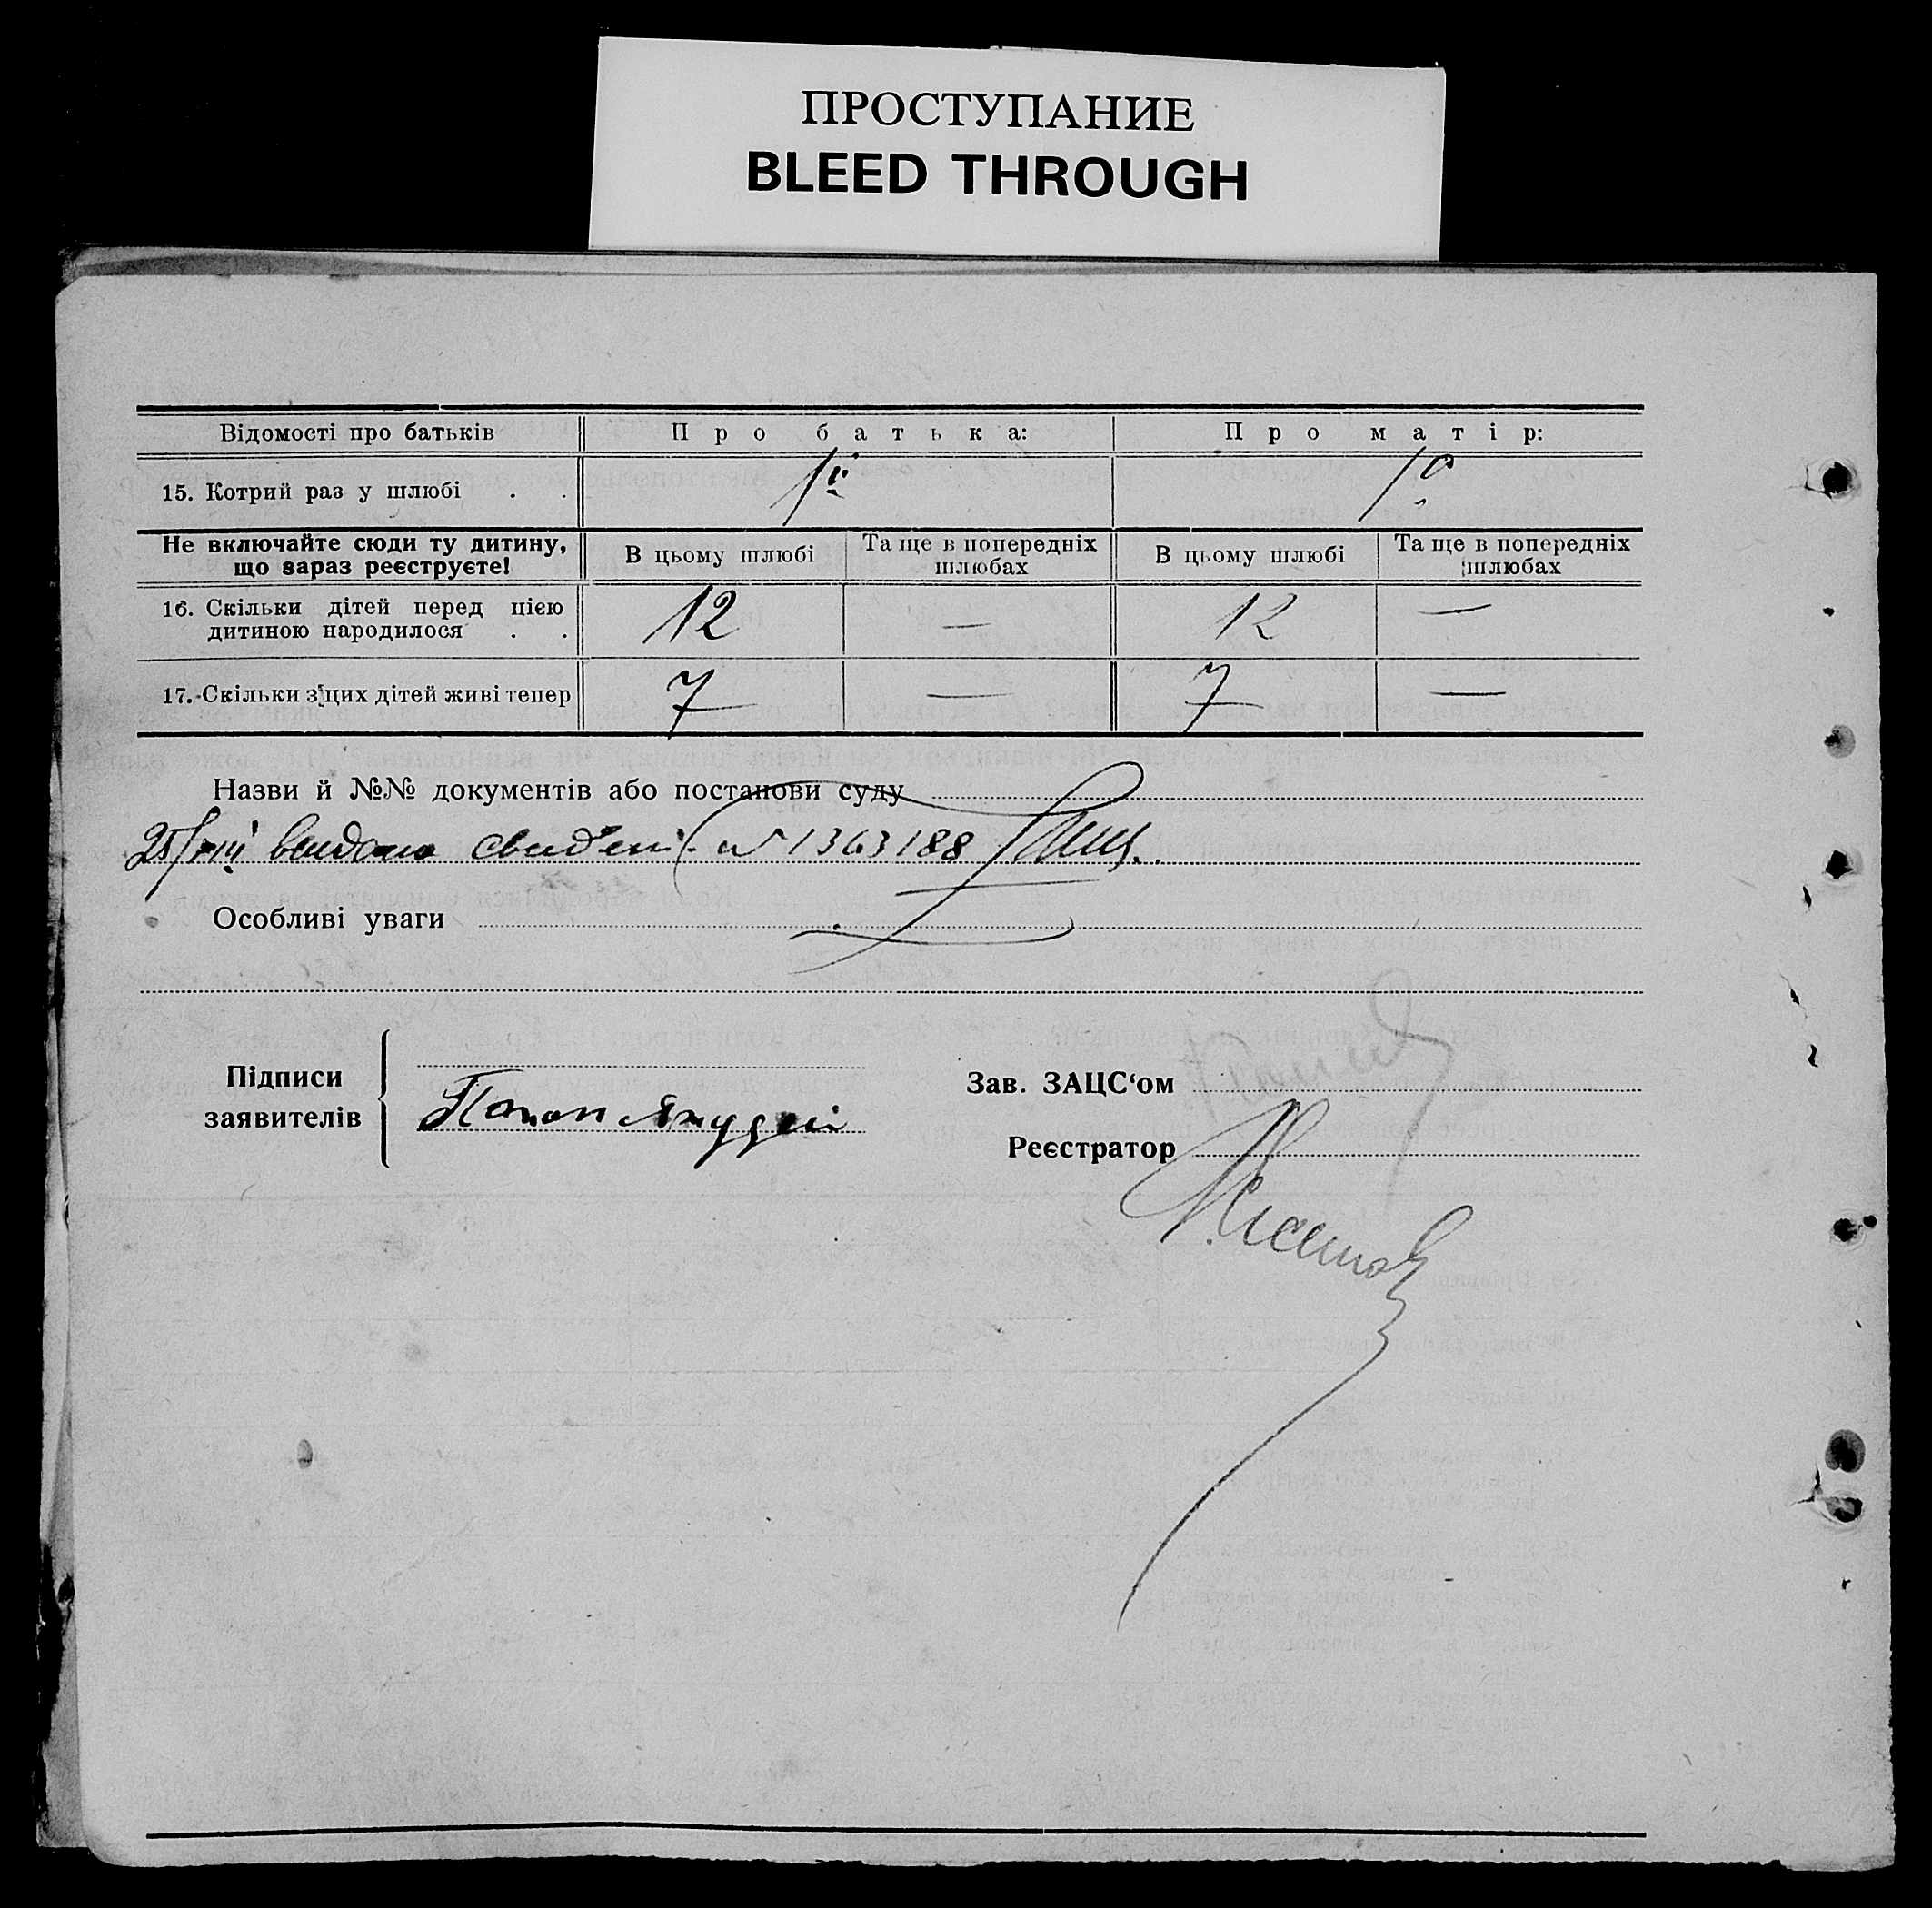 ПРОСТУПАНИЕ
BLEED THROUGH
Відомості про батьків Про батька: Про матір:
15. Котрий раз у шлюбі . . 1й 1й
Не включайте сюди ту дитину, що зараз реєструєте! В цьому шлюбі Та ще в попередніх шлюбах В цьому шлюбі Та ще в попередніх шлюбах
16. Скільки дітей перед цією дитиною народилося . . 12 — 12 —
17. Скільки з цих дітей живі тепер 7 — 7 —
Назви й №№ документів або постанови суду
25/VIII видано свидені № 1363188
Особливі уваги
Підписи
заявителів
Зав. ЗАЦС‘ом
Реєстратор